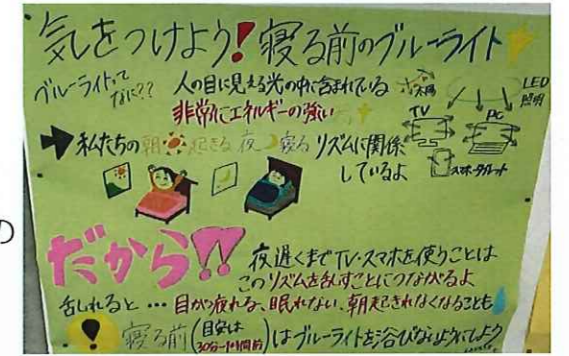 気をつけよう!寝る前のブルーライト
ブルーライトって
なに??
人の目に見える光の中に含まれている
非常にエネルギーの強い光
太陽
LED
照明
TV
PC
スマホ・タブレット
➡私たちの朝起きる夜寝るリズムに関係
しているよ
の
だから!!
夜遅くまでTV・スマホを使うことは
このリズムを乱すことにつながるよ
乱れると…目が疲れる、眠れない、朝起きれなくなることも
寝る前(目安は30分~1時間前)はブルーライトを浴びないようにしよう